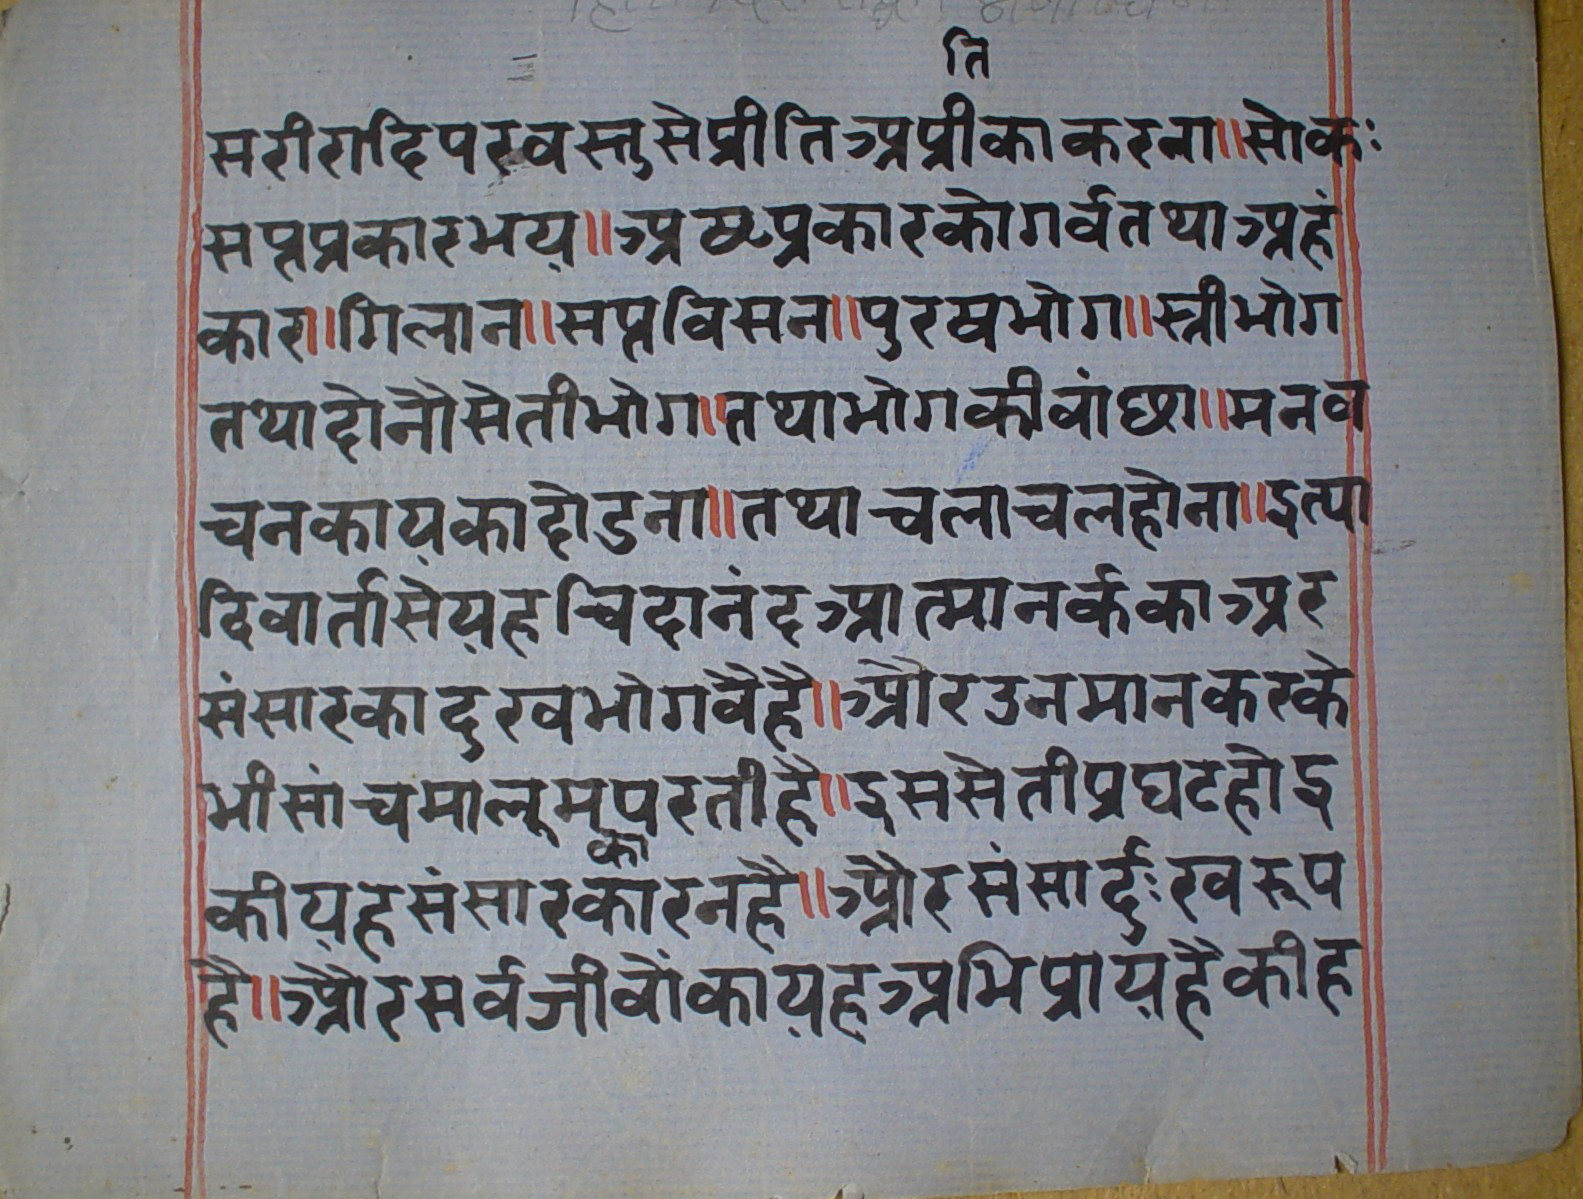 ति
सरीरादिपरवस्तुसेप्रीतिअप्रीकाकरना॥सोकः
सप्तप्रकारभय॥अष्टप्रकारकोगर्वतथाअहं
कार॥गिलान॥सप्तविसन॥पुरखभोग॥स्त्रीभोग
तथादोनौसेतीभोग॥तथाभोगकीवांछा॥मनव
चनकायकादोडना॥तथाचलाचलहोना॥इत्या
दिवार्तासेयहचिदानंदआत्मानर्ककाअर
संसारकादुखभोगवैहै॥औरउनमानकरके
भीसांचमालूमपरतीहै॥इससेतीप्रघटहोइ
का
कीयहसंसारकारनहै॥औरसंसार्दुःखरूप
है॥औरसर्वजीवोंकायहअभिप्रायहैकीह